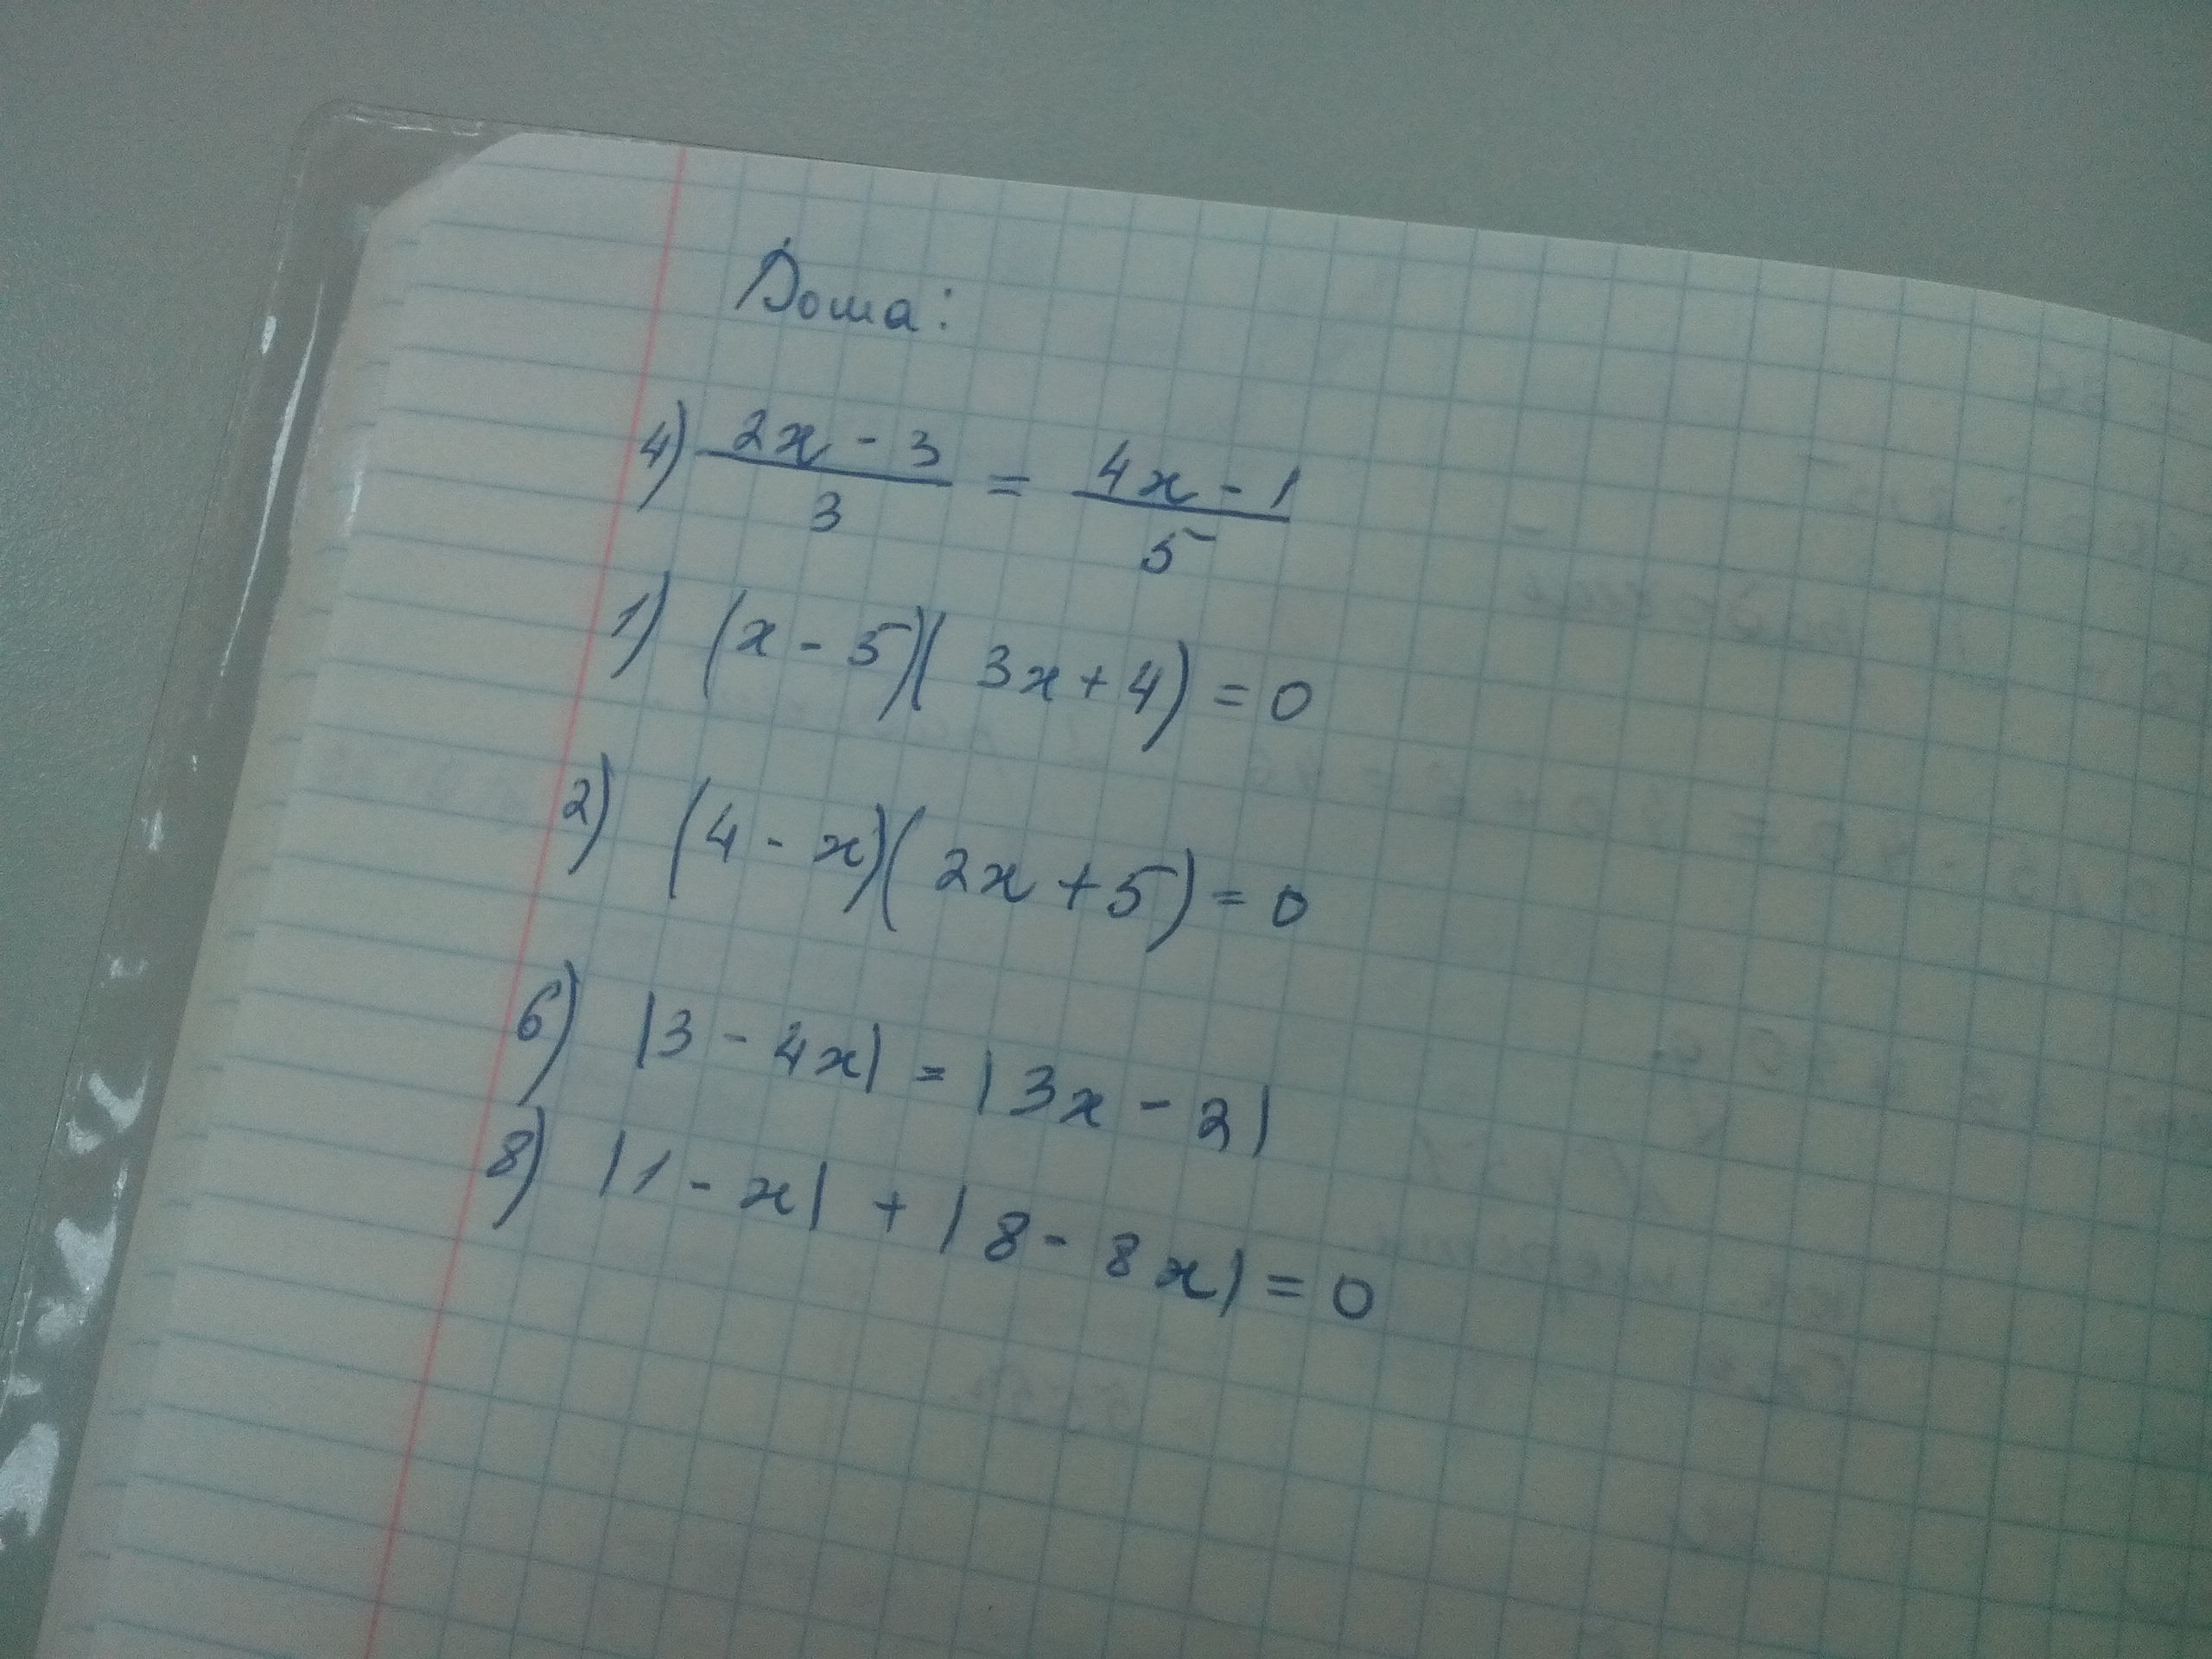 Дома:
4) (2x - 3)/3 = (4x - 1)/5
1) (x - 5)(3x + 4) = 0
2) (4 - x)(2x + 5) = 0
6) |3 - 4x| = |3x - 2|
8) |1 - x| + |8 - 8x| = 0